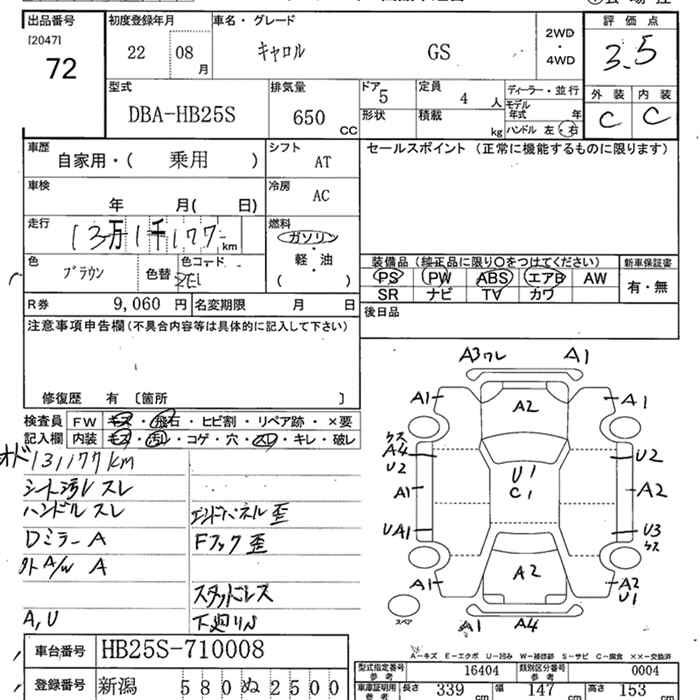 出品番号 初度登録年月 車名・グレード 2WD・4WD 評価点
[2047]
72 22 08月 キャロル GS 3.5
型式 排気量 ドア 5 定員 4人 ディーラー・並行 外装 内装
DBA-HB25S 650 CC 形状 積載 kg モデル年式 年 C C
ハンドル 左・右
車歴 自家用・( 乗用 ) シフト AT セールスポイント (正常に機能するものに限ります)
車検 年 月( 日) 冷房 AC
走行 13万1千177km 燃料 ガソリン
軽・油
( )
色 ブラウン 色替 色コード ZEL
装備品 (純正品に限り○をつけてください) 新車保証書
PS PW ABS エアB AW 有・無
SR ナビ TV カワ
R券 9,060 円 名変期限 月 日 後日品
注意事項申告欄(不具合内容等は具体的に記入して下さい)
修復歴 有 〔箇所 〕
検査員 FW キズ・飛石・ヒビ割・リペア跡・×要
記入欄 内装 キズ・汚レ・コゲ・穴・スレ・キレ・破レ
オド 131177km
シート汚レ スレ
ハンドル スレ エンドパネル 歪
Dミラー A Fフック 歪
外A/W A
スタッドレス
A,U 下廻りN
A3ワレ A1
A1 A2 A1
A4 U2
U2 U1
A1 C1 A2
UA1 U3
A2
A1 A2
U1
スペア A1 A4
A-キズ E-エクボ U-凹み W-補修跡 S-サビ C-腐食 ××-交換済
車台番号 HB25S-710008
型式指定番号 参考 16404 類別区分番号 参考 0004
登録番号 新潟 580 ぬ 2500
車検証明用 参考 長さ 339 cm 幅 147 cm 高さ 153 cm